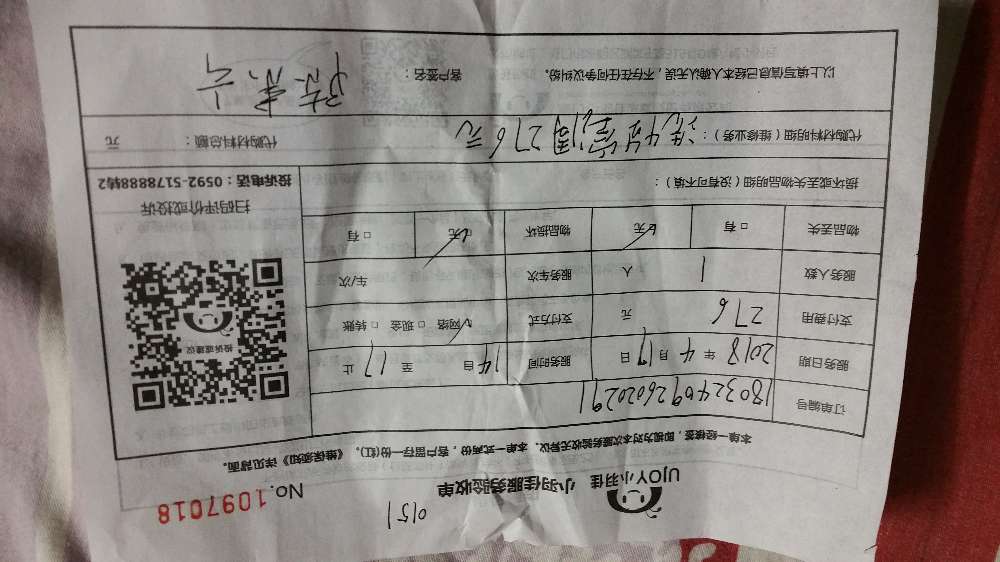 0151
UJOY小羽佳 小羽佳服务验收单 No. 1097018
本单一经接签，即视为对本次服务验收无异议。本单一式两份，客户留存一份(红)，《维保须知》详见背面。
订单编号 1803240926020291
服务日期 2018 年 4 月 17 日 服务时间 14 自 至 17 止
支付费用 276 元 支付方式 ☑网络 □现金 □转账
服务人数 1 人 服务车次 车/次
物品丢失 □有 ☑无 物品损坏 ☑无 □有
投诉或建议
扫码评价或投诉
投诉电话：0592-5178888转2
损坏或丢失物品明细（没有可不填）：
代购材料明细（维修业务）： 276元 代购材料总额： 元
以上填写信息已经本人确认无误，不存在任何争议纠纷。 客户签名：